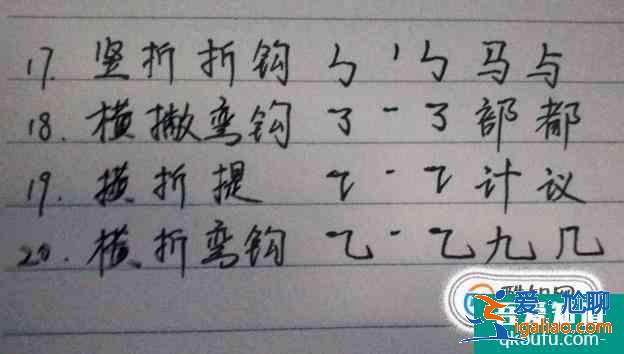 17. 竖折折钩 ㄣ 丨ㄣ 马与
18. 横撇弯钩 ㇌ 一 ㇌ 部都
19. 横折提 ㇊ 一 ㇊ 计议
20. 横折弯钩 ㇈ 一 ㇈ 九几
爱·尬聊
igaliao.com
qkoufu.com